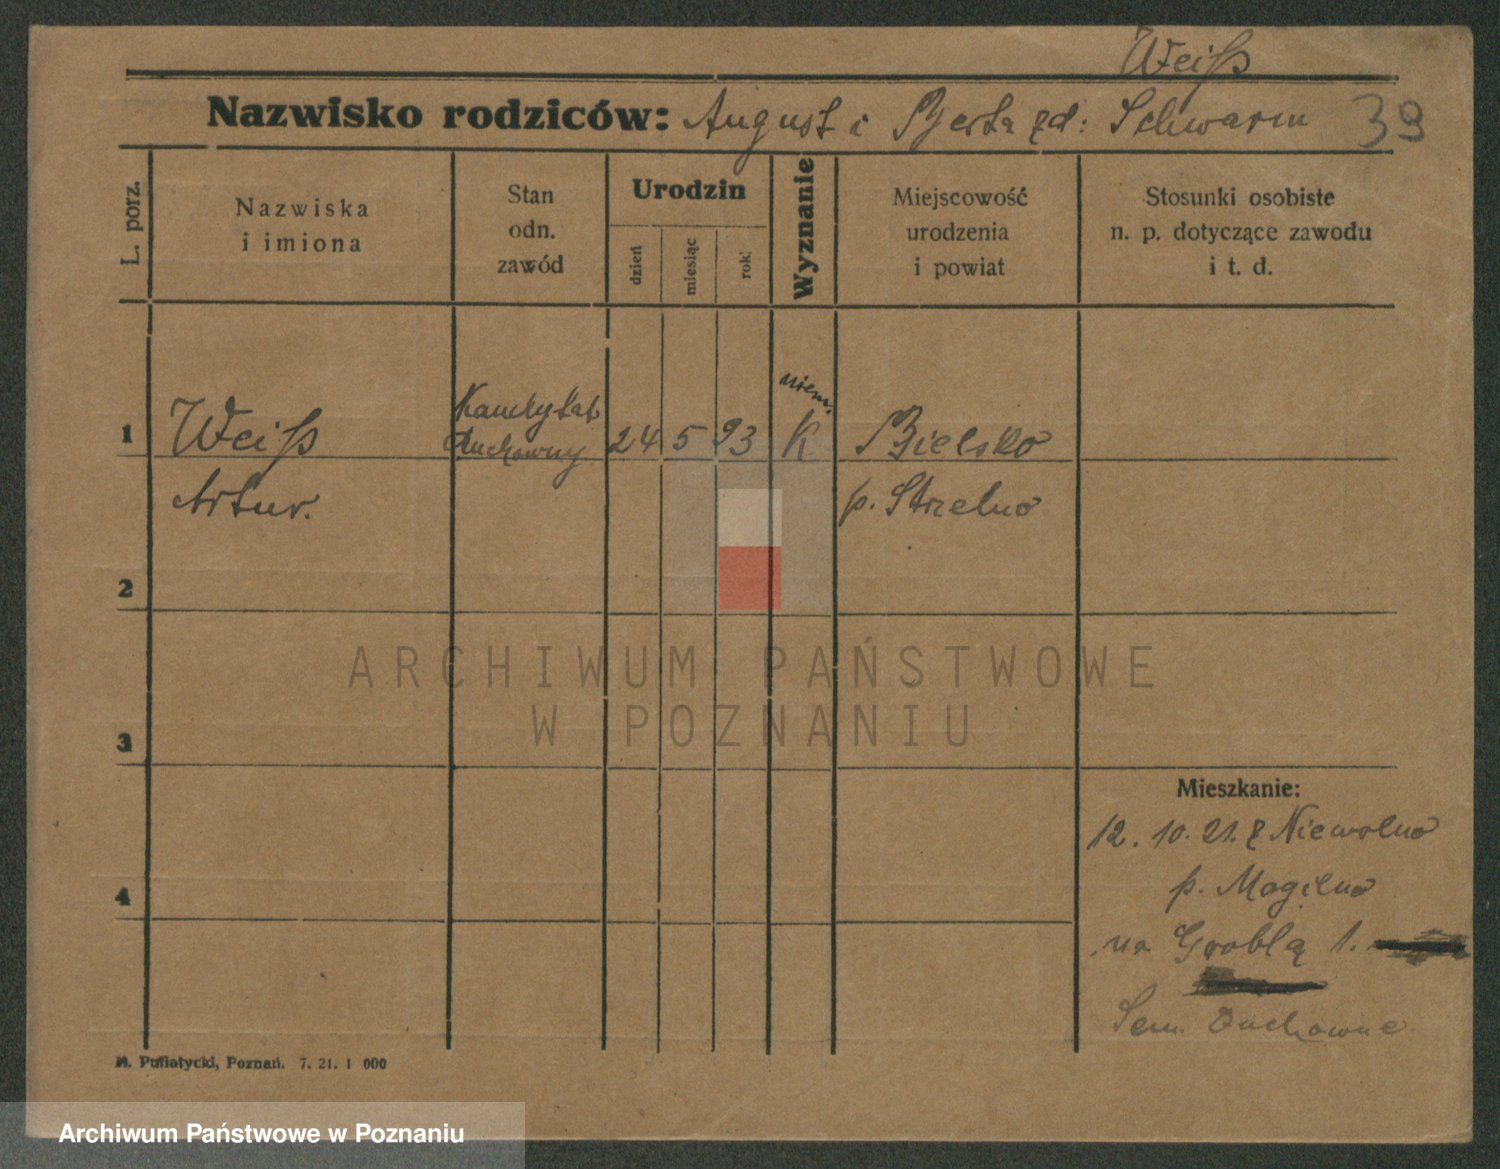 Weiß
Nazwisko rodziców: August i Berta zd: Schwarm 39
L. porz.
Nazwiska
i imiona
Stan
odn.
zawód
Urodzin
dzień
miesiąc
rok
Wyznanie
Miejscowość
urodzenia
i powiat
Stosunki osobiste
n. p. dotyczące zawodu
i t. d.
niem.
Kandydat
1 Weiß duchowny 24 5 93 K Bielsko
Artur. p. Strzelno
2
ARCHIWUM PAŃSTWOWE
W POZNANIU
3
Mieszkanie:
12. 10. 21. z Niewolno
p. Mogilno
4
na Groblą 1.
Sem. Duchowne
M. Putiatycki, Poznań. 7. 21. 1 000
Archiwum Państwowe w Poznaniu